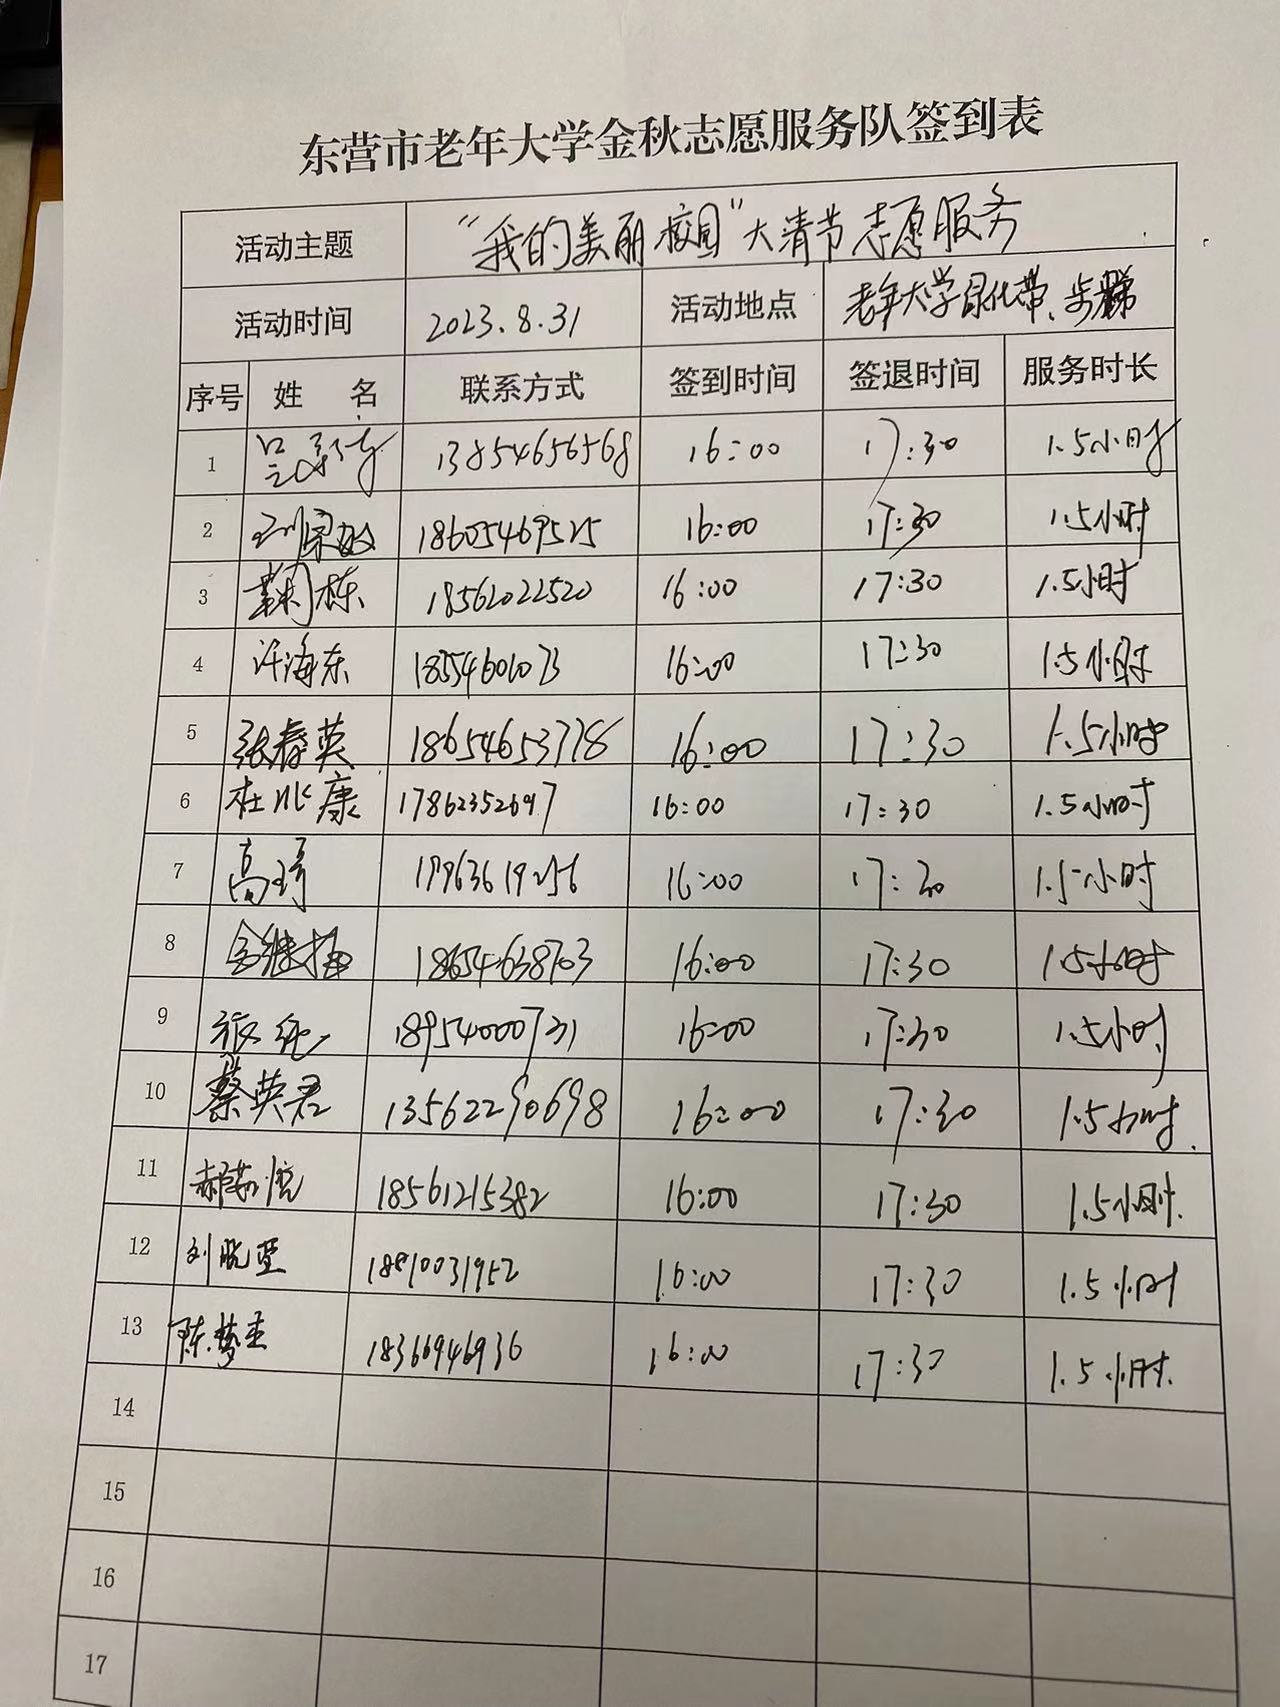 东营市老年大学金秋志愿服务队签到表
活动主题 “我的美丽校园”大清节志愿服务
活动时间 2023.8.31 活动地点 老年大学绿化带、步梯
序号 姓 名 联系方式 签到时间 签退时间 服务时长
1 13854656568 16:00 17:30 1.5小时
2 18605469525 16:00 17:30 1.5小时
3 鞠栋 18562022520 16:00 17:30 1.5小时
4 许海东 16:00 17:30 1.5小时
5 张春英 18654653778 16:00 17:30 1.5小时
6 杜兆康 17862352697 16:00 17:30 1.5小时
7 高琦 16:00 17:30 1.5小时
8 18654638703 16:00 17:30 1.5小时
9 18954000731 16:00 17:30 1.5小时
10 蔡英君 13562290698 16:00 17:30 1.5小时.
11 18561215382 16:00 17:30 1.5小时.
12 刘晓莹 18810031952 16:00 17:30 1.5小时
13 陈梦圭 18366946936 16:00 17:30 1.5小时.
14
15
16
17